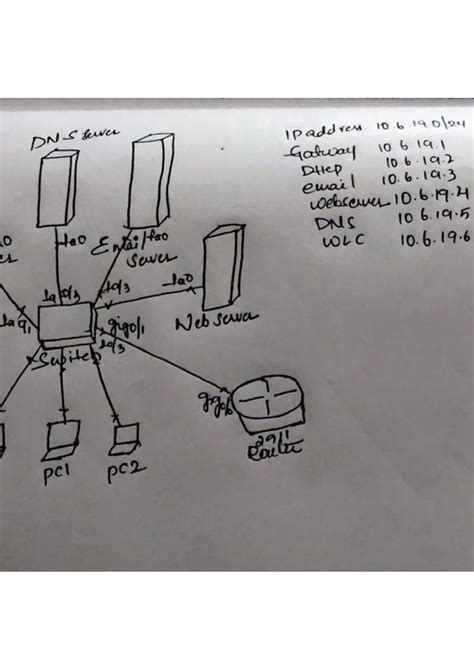 DNS server
IP address 10.6.19.0/24
Gateway 10.6 19.1
DHCP 10.6.19.2
email 10.6.19.3
Webserver 10.6.19.4
DNS 10.6.19.5
WLC 10.6.19.6
fa0
Email fa0
Server
fa0
Web Server
fa0/3
gig0/1
fa0/3
Switch
PC1
PC2
2911
Router